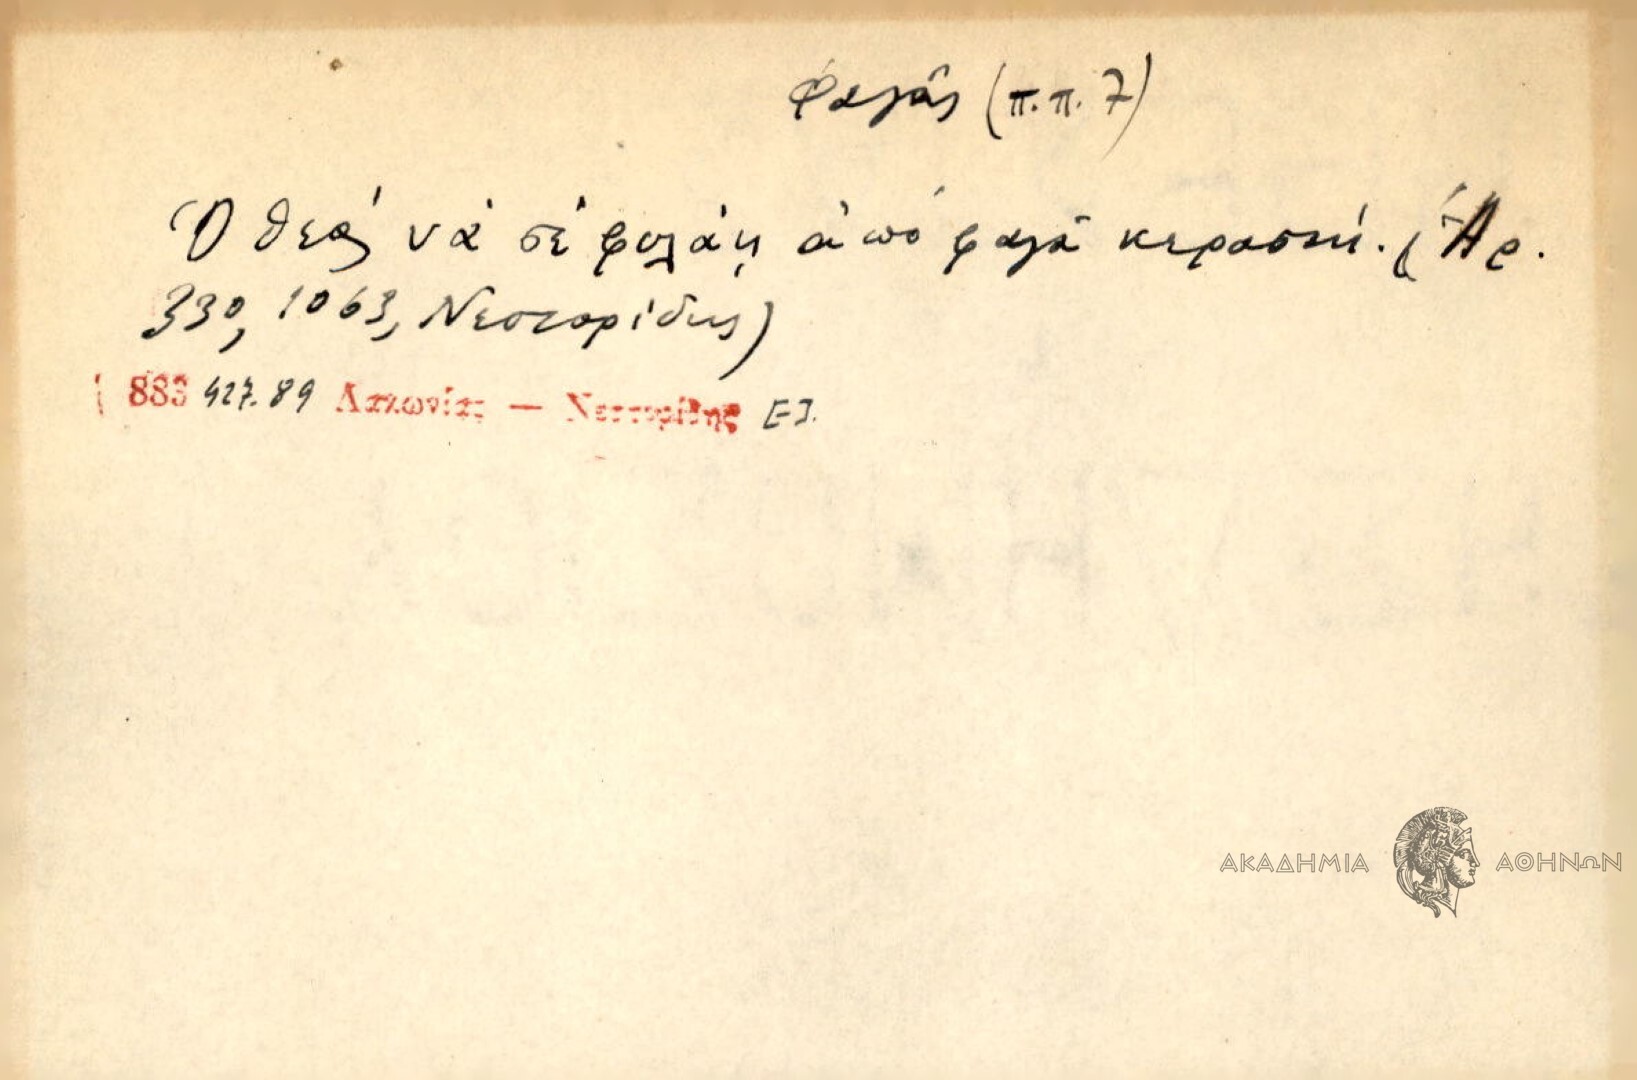 Φαγᾶς (π.π. 7)
Ὁ θεὸς νὰ σὲ φυλάῃ ἀπὸ φαγᾶ κεραστή. (Ἀρ.
330, 1063, Νεστορίδης)
883 427.89 Λακωνίας — Νεστορίδης [-].
ΑΚΑΔΗΜΙΑ ΑΘΗΝΩΝ